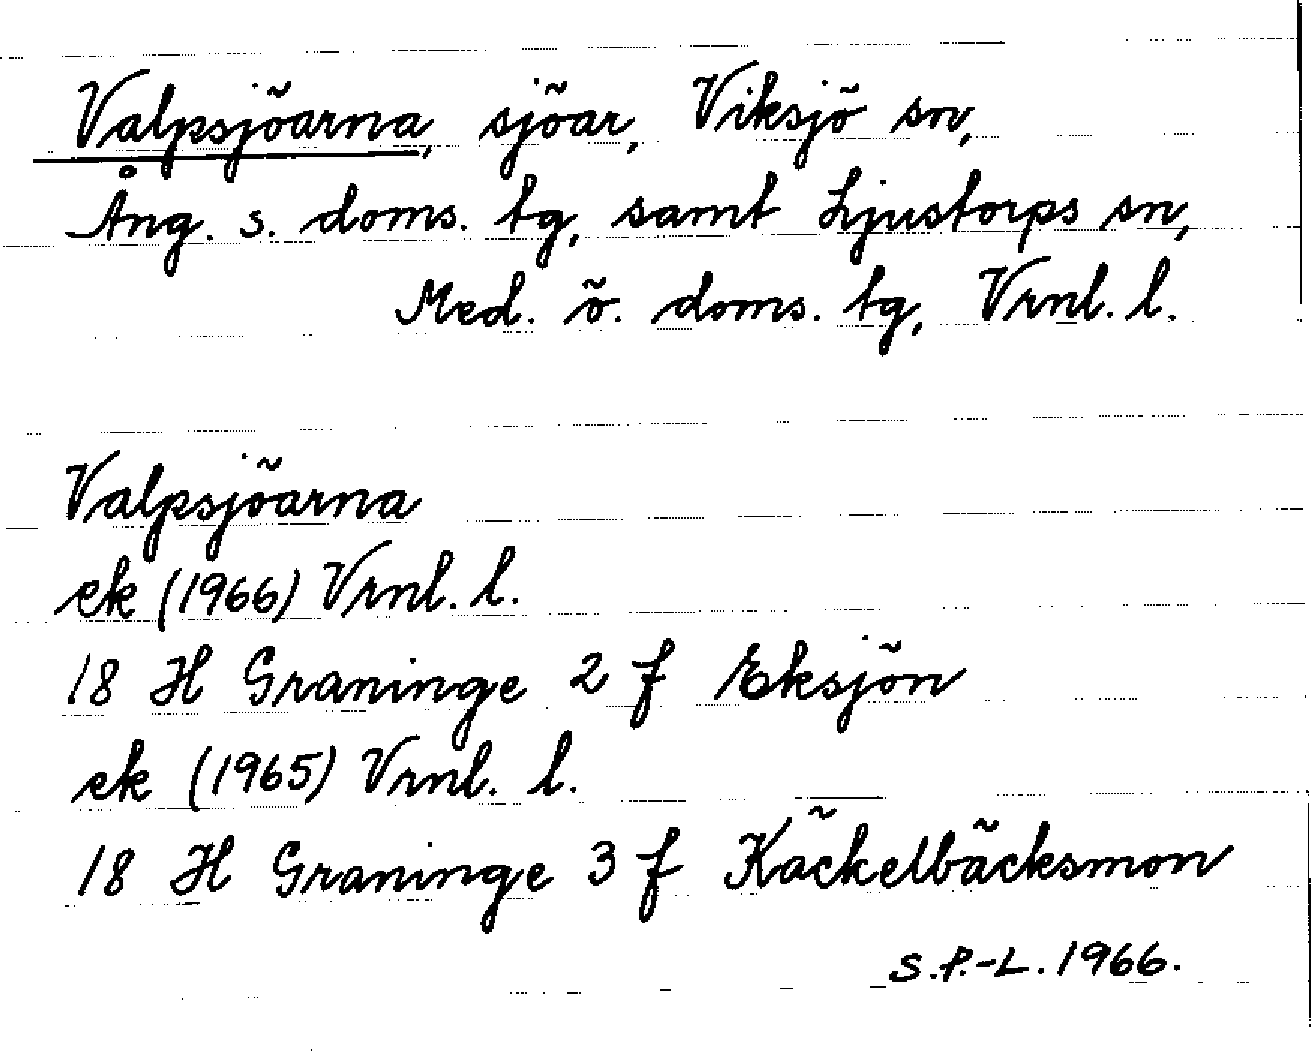 Valpsjöarna, sjöar, Viksjö sn,
Ång. s. doms. tg, samt Ljustorps sn,
Med. ö. doms. tg, Vrnl. l.
Valpsjöarna
ek (1966) Vrnl. l.
18 H Graninge 2 f Eksjön
ek (1965) Vrnl. l.
18 H Graninge 3 f Käckelbäcksmon
S.P.-L. 1966.